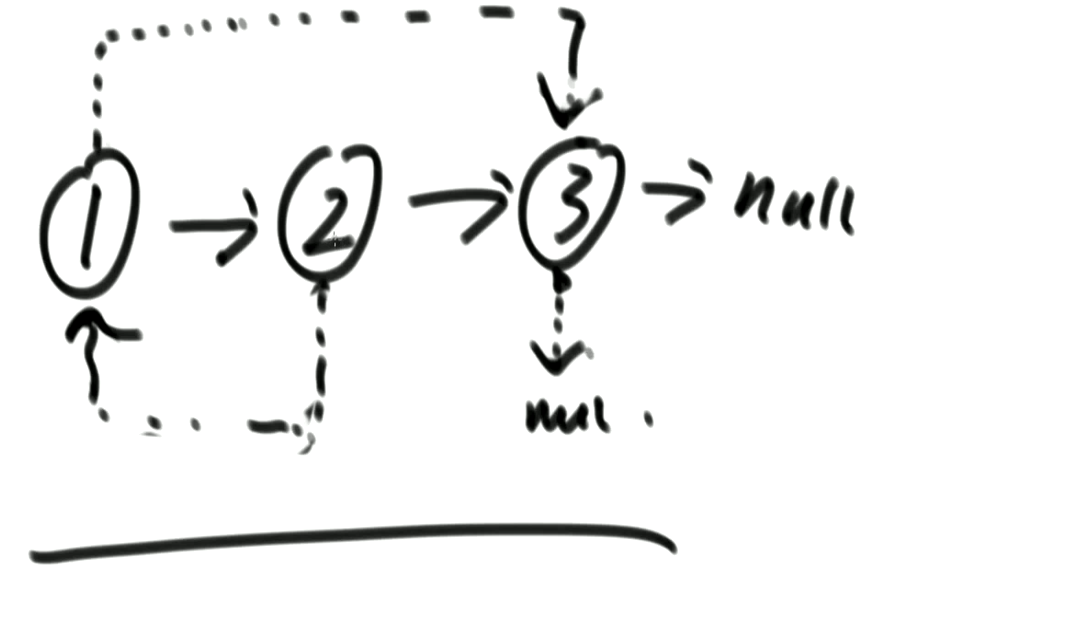 1 → 2 → 3 → null
null